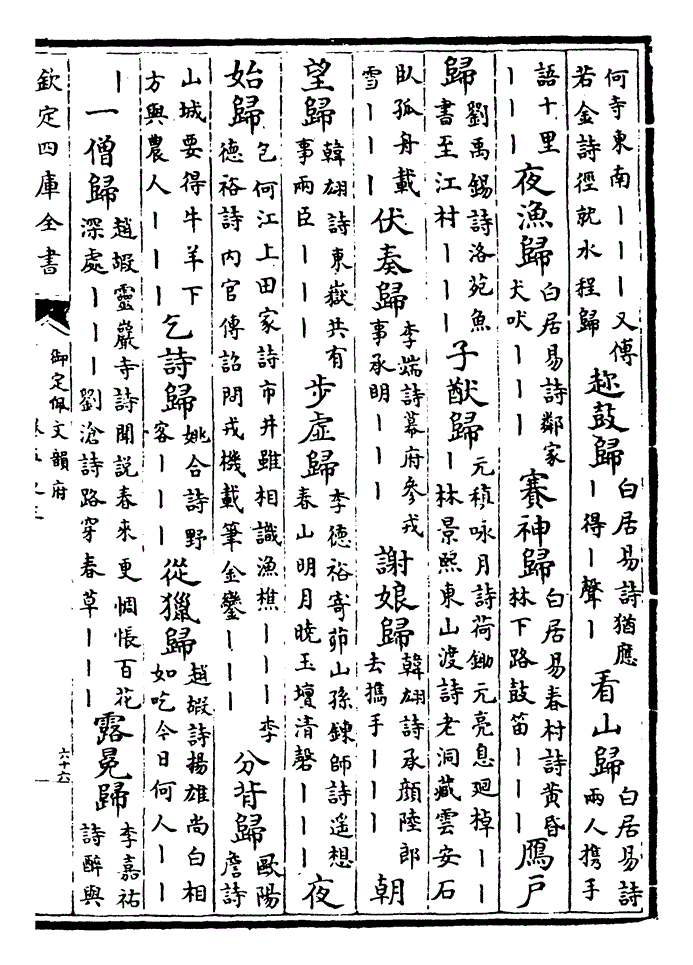 何寺東南｜｜｜又傳
若金詩徑就水程歸
趂鼓歸
白居易詩猶應
｜得｜聲｜
看山歸
白居易詩
兩人携手
語十里
｜｜｜
夜漁歸
白居易詩鄰家
犬吠｜｜｜
賽神歸
白居易春村詩黄昏
林下路鼓笛｜｜｜
鴈戸
歸
劉禹錫詩洛苑魚
書至江村｜｜｜
子猷歸
元稹咏月詩荷鋤元亮息廻棹｜｜
｜林景熙東山渡詩老洞藏雲安石
臥孤舟載
雪｜｜｜
伏奏歸
李端詩幕府參戎
事承明｜｜｜
謝娘歸
韓翃詩承顔陸郎
去擕手｜｜｜
朝
望歸
韓翃詩東嶽共有
事兩臣｜｜｜
步虚歸
李德裕寄茆山孫鍊師詩遥想
春山明月曉玉壇清磬｜｜｜
夜
始歸
包何江上田家詩市井雖相識漁樵｜｜｜李
德裕詩内官傳詔問戎機載筆金鑾｜｜｜
分背歸
歐陽
詹詩
山城要得牛羊下
方與農人｜｜｜
乞詩歸
姚合詩野
客｜｜｜
從獵歸
趙嘏詩揚雄尚白相
如吃今日何人｜｜
｜
一僧歸
趙嘏靈巖寺詩聞説春來更惆悵百花
深處｜｜｜劉滄詩路穿春草｜｜｜
露冕歸
李嘉祐
詩醉與
欽定四庫全書
御定佩文韻府
六十六